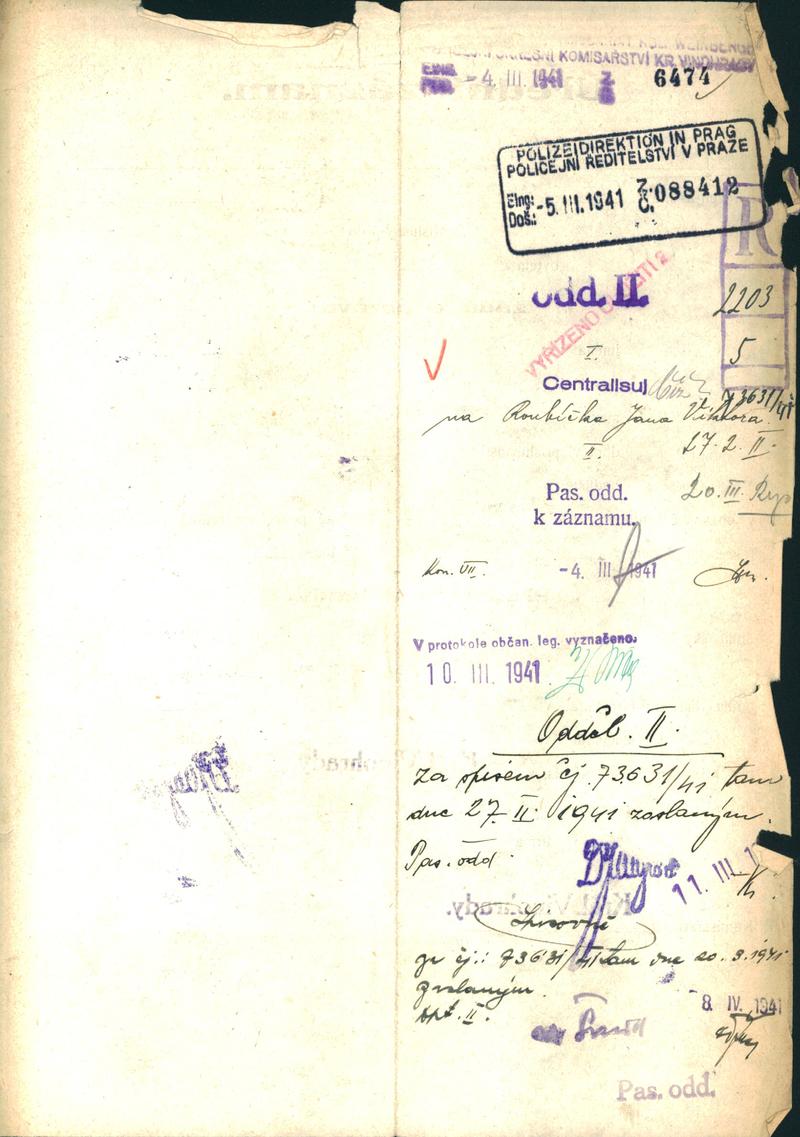 KOMISAŘSTVÍ KR. VINOHRADY
-4. III. 1941 6474
POLIZEIDIREKTION IN PRAG
POLICEJNÍ ŘEDITELSTVÍ V PRAZE
Eing: Doš.: -5. III. 1941 Z. Č. 088412
R
Odd. II.
2203
VYŘÍZENO
5
I.
Centralisuj
73631/41
na Roubíčka Jana Viktora.
27. 2. II.
II.
Pas. odd.
20. III.
k záznamu.
Kon. VII. -4. III. 1941
V protokole občan. leg. vyznačeno.
10. III. 1941
Odděl. II.
za spisem čj. 73.631/41 tam
dne 27. II. 1941 zaslaným.
Pas. odd.
11. III. 1
Kr. Vinohrady.
čj.: 73631/41 tam dne 20. 3. 1941
zaslaným.
II.
8. IV. 1941
Pas. odd.